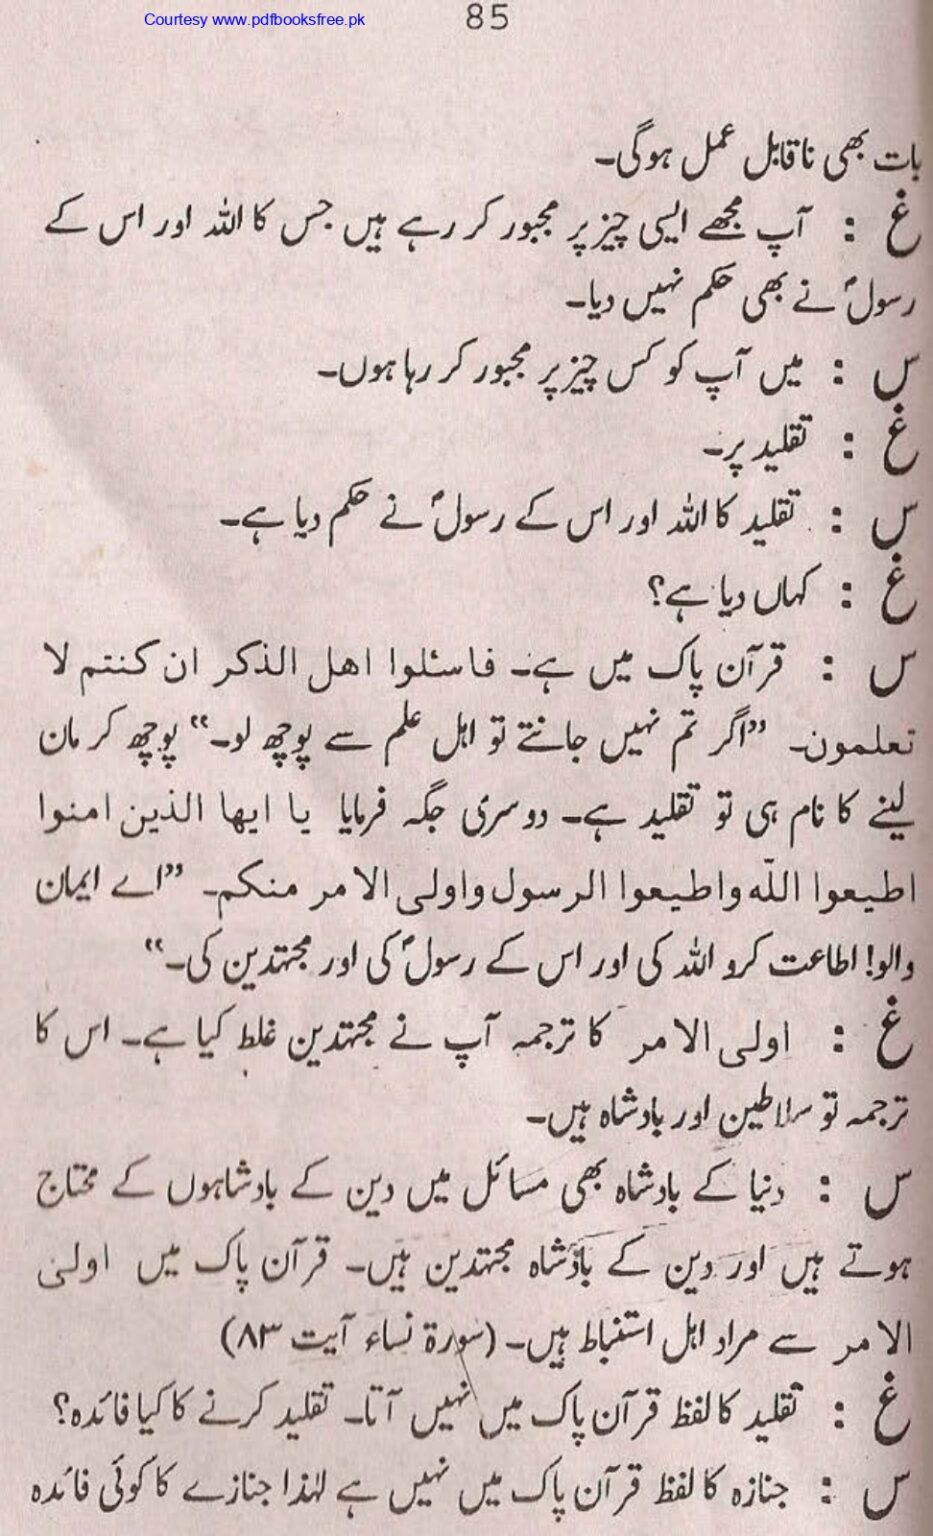 Courtesy www.pdfbooksfree.pk
85
بات بھی ناقابل عمل ہوگی۔
غ : آپ مجھے ایسی چیز پر مجبور کر رہے ہیں جس کا اللہ اور اس کے
رسولؐ نے بھی حکم نہیں دیا۔
س : میں آپ کو کس چیز پر مجبور کر رہا ہوں۔
غ : تقلید پر۔
س : تقلید کا اللہ اور اس کے رسولؐ نے حکم دیا ہے۔
غ : کہاں دیا ہے؟
س : قرآن پاک میں ہے۔ فاسئلوا اھل الذکر ان کنتم لا
تعلمون۔ ”اگر تم نہیں جانتے تو اہل علم سے پوچھ لو۔“ پوچھ کر مان
لینے کا نام ہی تو تقلید ہے۔ دوسری جگہ فرمایا یا ایھا الذین امنوا
اطیعوا اللّٰہ واطیعوا الرسول واولی الامر منکم۔ ”اے ایمان
والو! اطاعت کرو اللہ کی اور اس کے رسولؐ کی اور مجتہدین کی۔“
غ : اولی الامر کا ترجمہ آپ نے مجتہدین غلط کیا ہے۔ اس کا
ترجمہ تو سلاطین اور بادشاہ ہیں۔
س : دنیا کے بادشاہ بھی مسائل میں دین کے بادشاہوں کے محتاج
ہوتے ہیں اور دین کے بادشاہ مجتہدین ہیں۔ قرآن پاک میں اولی
الامر سے مراد اہل استنباط ہیں۔ (سورۃ نساء آیت ۸۳)
غ : تقلید کا لفظ قرآن پاک میں نہیں آتا۔ تقلید کرنے کا کیا فائدہ؟
س : جنازہ کا لفظ قرآن پاک میں نہیں ہے لہٰذا جنازے کا کوئی فائدہ